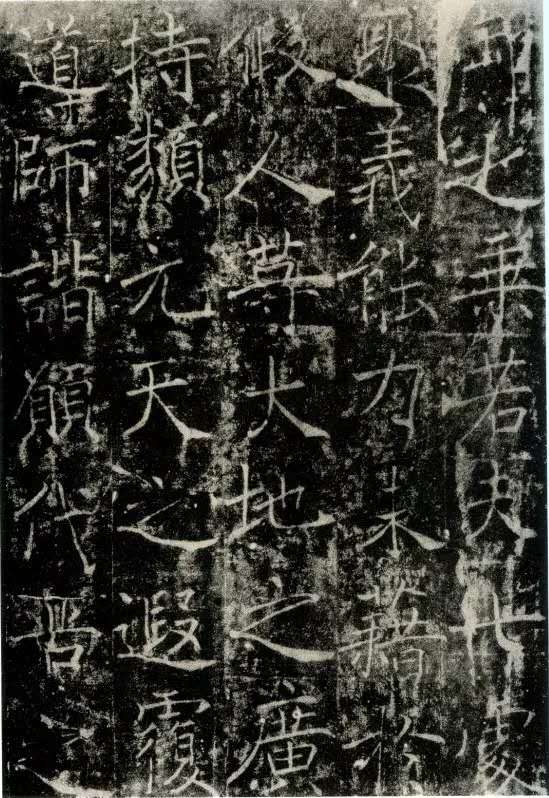 御乘若夫七處
取義能力未藉於
假人等大地之廣
持類元天之遐覆
導師諧願代